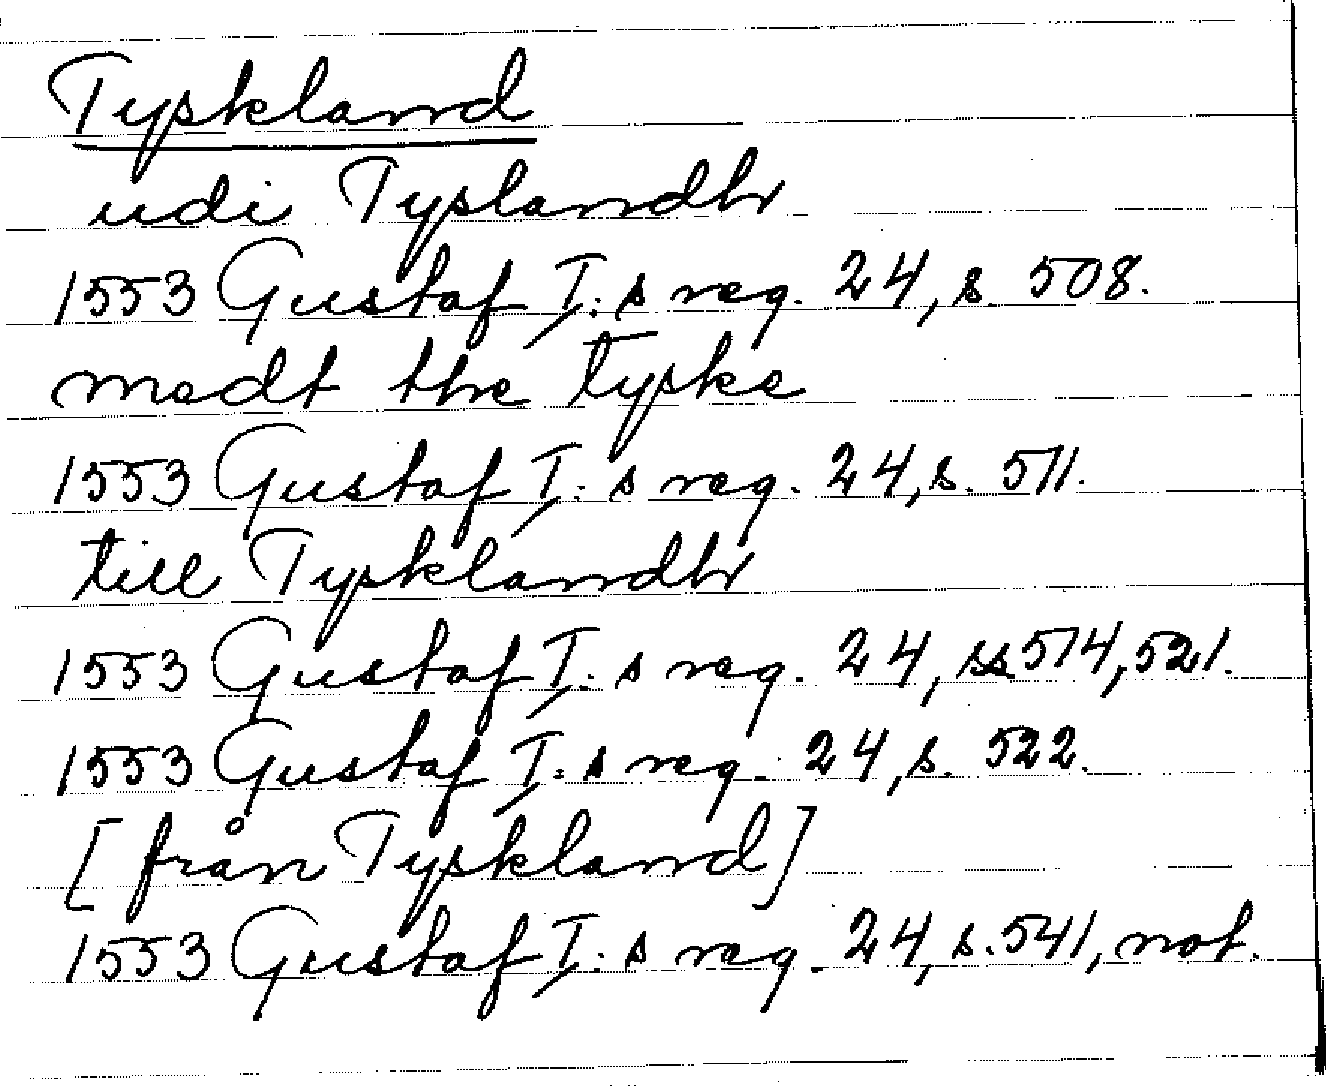 Tyskland
udi Tyslandh
1553 Gustaf I:s reg. 24, s. 508.
medt the tyske
1553 Gustaf I:s reg. 24, s. 511.
till Tysklandh
1553 Gustaf I:s reg. 24, ss 514, 521.
1553 Gustaf I:s reg. 24, s. 522.
[från Tyskland]
1553 Gustaf I:s reg. 24, s. 541, not.